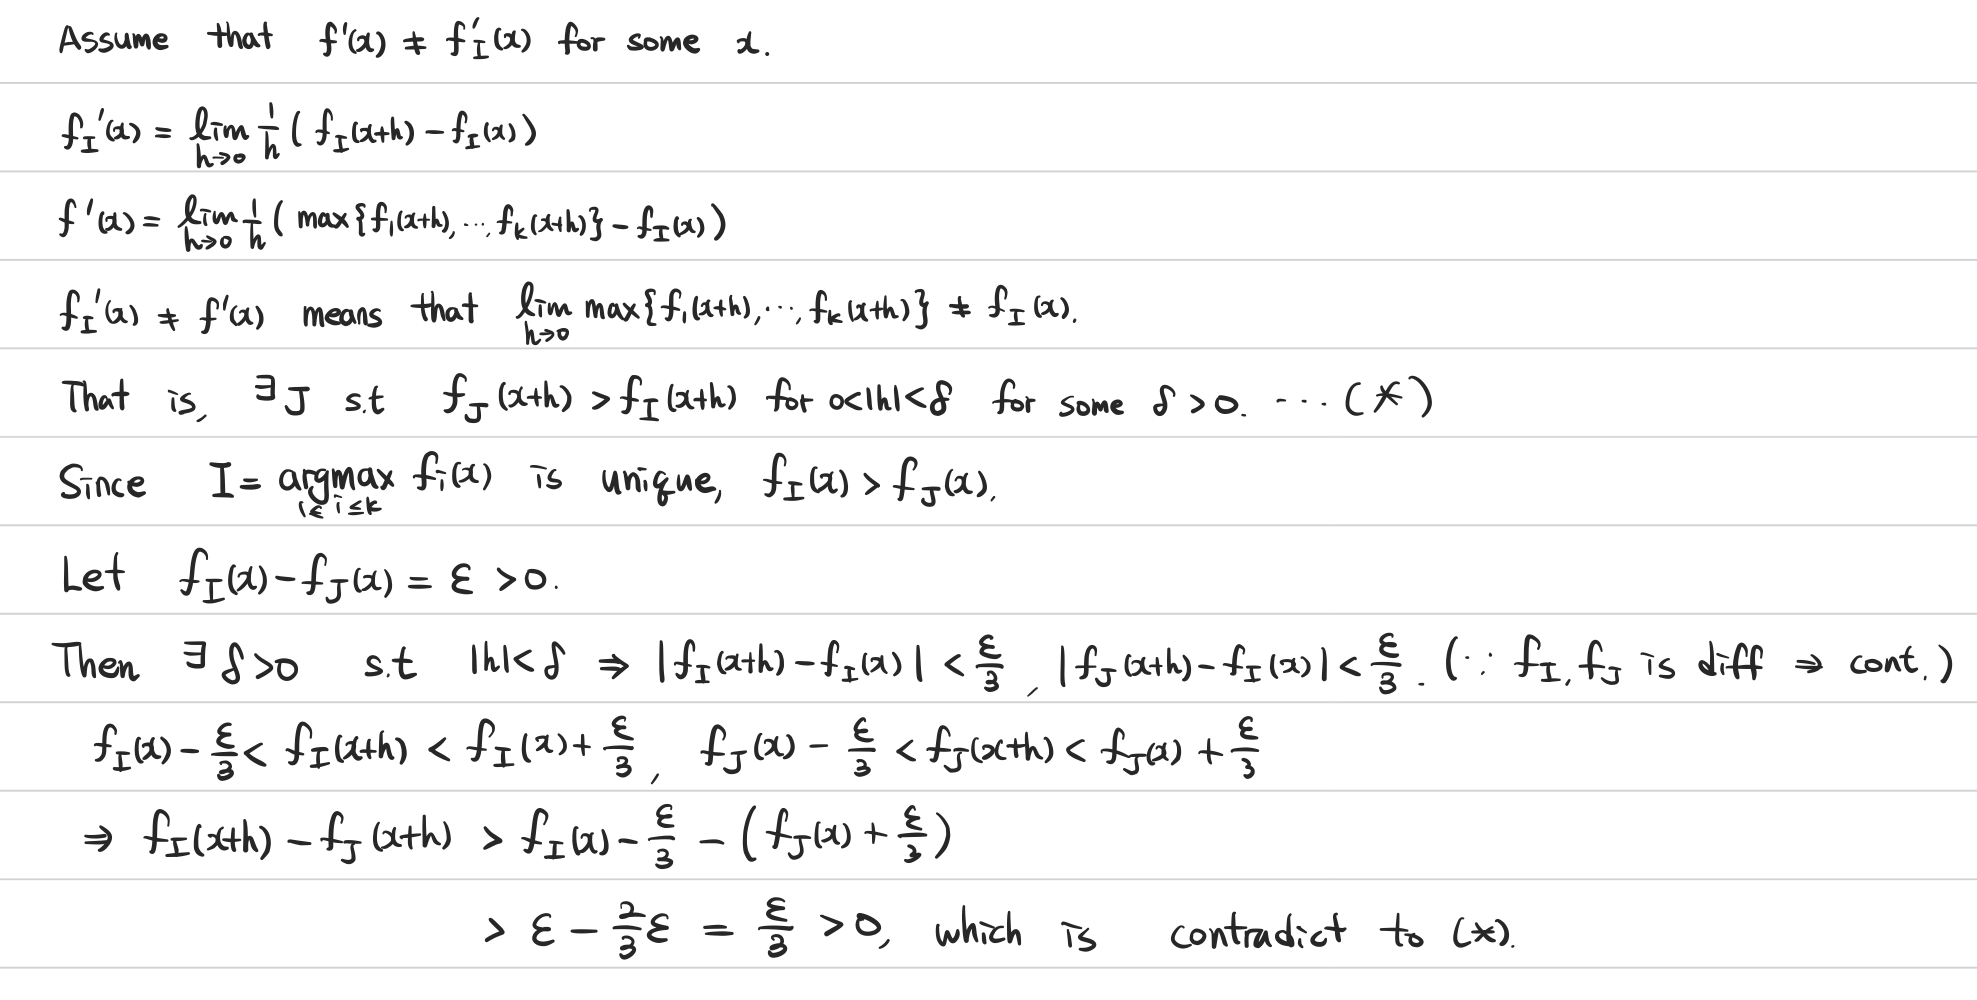 Assume that f'(x) ≠ f_I'(x) for some x.
f_I'(x) = lim_{h→0} 1/h ( f_I(x+h) - f_I(x) )
f'(x) = lim_{h→0} 1/h ( max{f_1(x+h), ..., f_k(x+h)} - f_I(x) )
f_I'(x) ≠ f'(x) means that lim_{h→0} max{f_1(x+h), ..., f_k(x+h)} ≠ f_I(x).
That is, ∃J s.t f_J(x+h) > f_I(x+h) for 0<|h|<δ for some δ>0. ... (*)
Since I = argmax_{1≤i≤k} f_i(x) is unique, f_I(x) > f_J(x).
Let f_I(x) - f_J(x) = ε > 0.
Then ∃δ>0 s.t |h|<δ ⇒ |f_I(x+h) - f_I(x)| < ε/3, |f_J(x+h) - f_I(x)| < ε/3. (∵ f_I, f_J is diff ⇒ cont.)
f_I(x) - ε/3 < f_I(x+h) < f_I(x) + ε/3, f_J(x) - ε/3 < f_J(x+h) < f_J(x) + ε/3
⇒ f_I(x+h) - f_J(x+h) > f_I(x) - ε/3 - (f_J(x) + ε/3)
> ε - 2/3 ε = ε/3 > 0, which is contradict to (*).